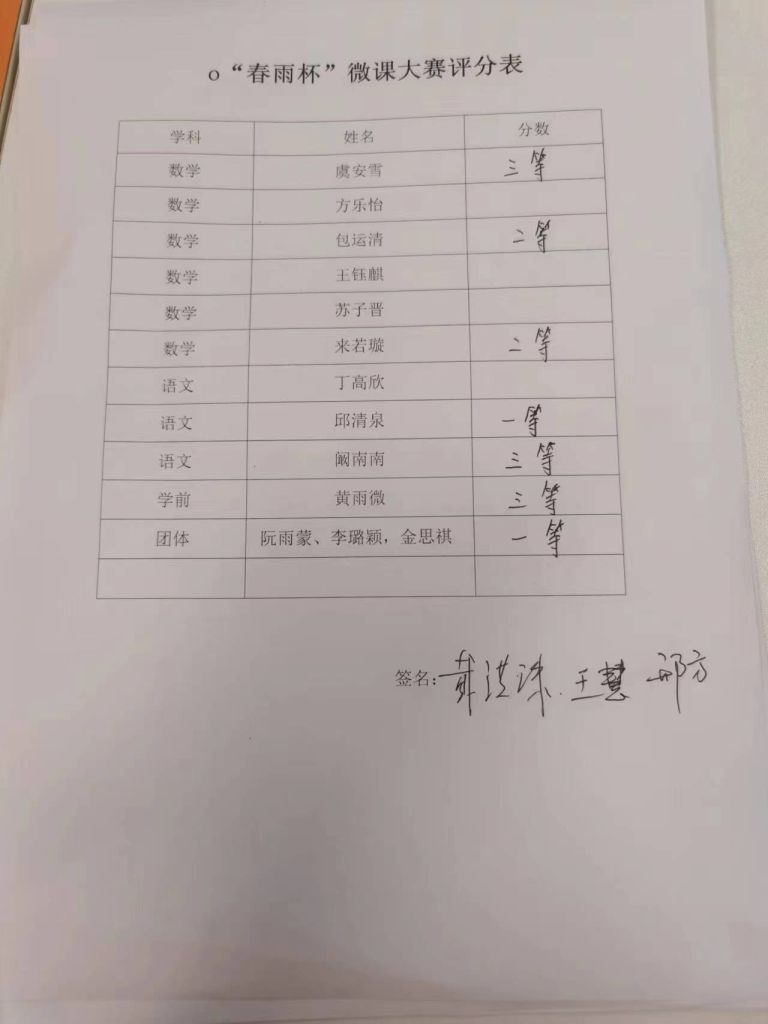 o“春雨杯”微课大赛评分表
学科 姓名 分数
数学 虞安雪 三等
数学 方乐怡
数学 包运清 二等
数学 王钰麒
数学 苏子晋
数学 来若璇 二等
语文 丁高欣
语文 邱清泉 一等
语文 阚南南 三等
学前 黄雨微 三等
团体 阮雨蒙、李璐颖，金思祺 一等
签名: 王慧